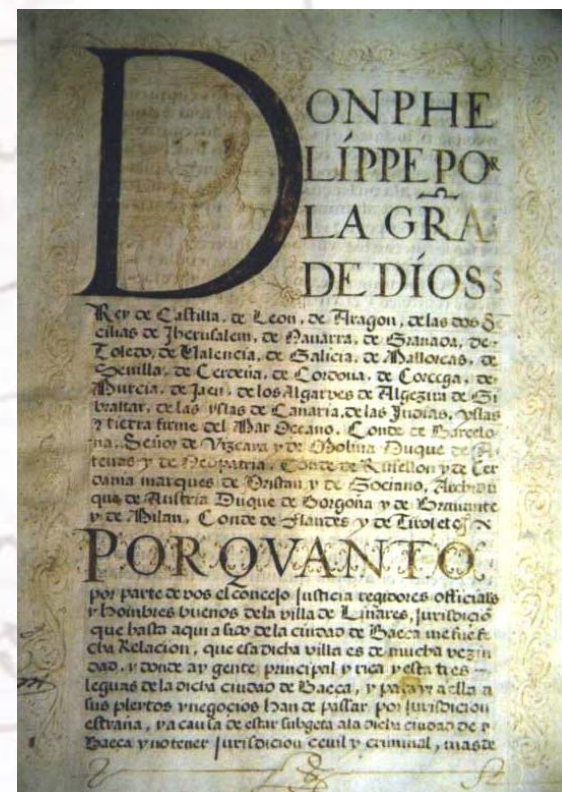 DON PHE
LÍPPE POR
LA GRA
DE DÍOS
Rey de Castilla, de Leon, de Aragon, delas dos Se
cilias de Jherusalem, de Nauarra, de Granada, de
Toledo, de Valencia, de Galicia, de Mallorcas, de
Seuilla, de Cerdeña, de Cordoua, de Corcega, de
Murcia, de Jaen, delos Algarves de Algezira de Gi
braltar, de las yslas de Canaria, de las Indias, yslas
y tierra firme del Mar Oceano. Conde de Barcelo
na, Señor de Vizcaya y de Molina Duque de A
tenas y de Neopatria. Conde de Rusellon y de Cer
dania marques de Oristan y de Gociano, Archidu
que de Austria Duque de Borgoña y de Brauante
y de Milan, Conde de Flandes y de Tirol etc
PORQVANTO
por parte de vos el concejo justicia regidores officiales
y hombres buenos dela villa de Linares, jurisdició
que hasta aqui a sido dela ciudad de Baeca me fue fe
cha Relacion, que esa dicha villa es de mucha vezin
dad, y donde ay gente principal y rica y esta tres
leguas dela dicha ciudad de Baeca, y para yr a ella a
sus pleytos y negocios han de passar por jurisdicion
estraña, y a causa de estar subgeta ala dicha ciudad de
Baeca y no tener jurisdicion ceuil y criminal, mas de